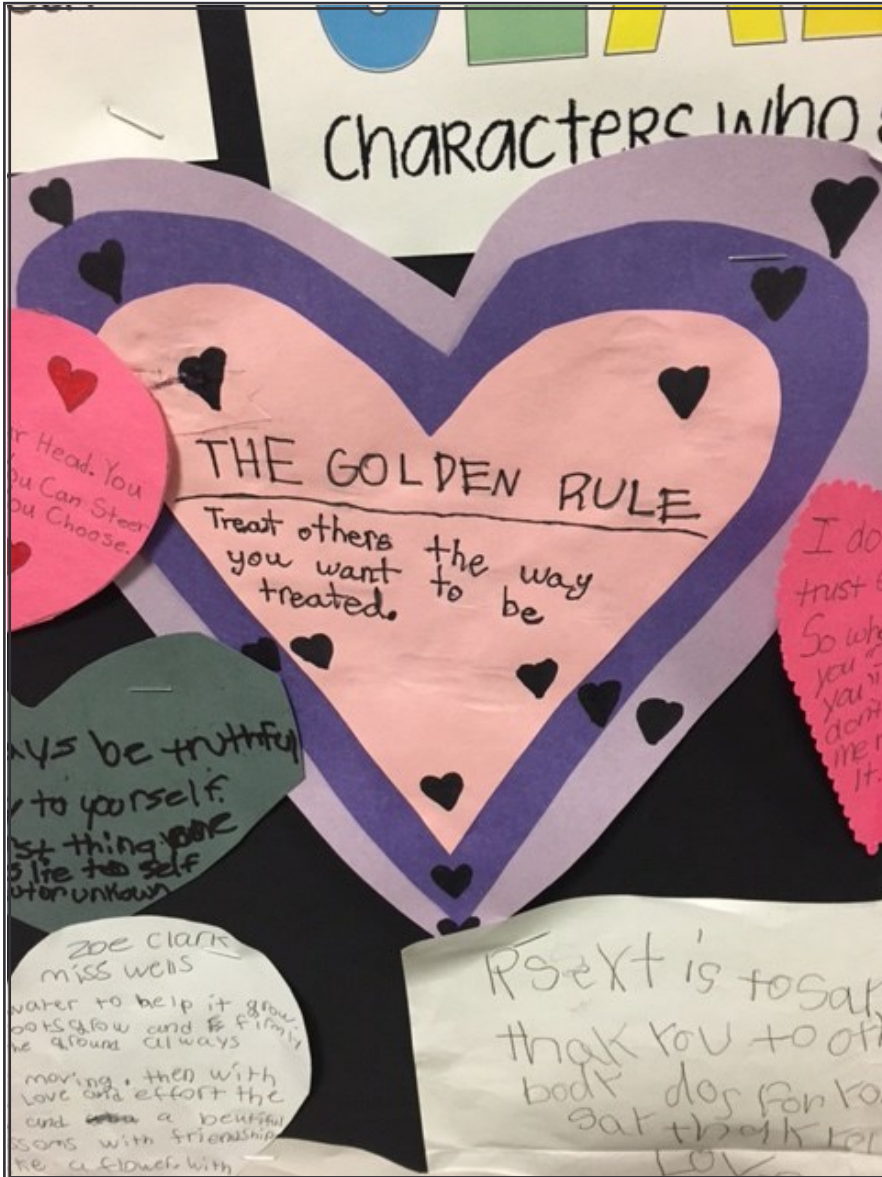 Characters who
THE GOLDEN RULE
Treat others the way
you want to be
treated.
r Head. You
ou Can Steer
ou Choose.
I do
trust
So wh
you
you
don't
me
It.
ys be truthful
to yourself.
st thing one
s lie to self
utor unknown
Zoe Clark
miss wells
water to help it grow.
ootsgrow and firmly
he ground always
moving. then with
Love and effort the
and a beautiful
ssoms with friendship
ke a flower. with
Rsext is to sar
thak You to oth
bodr dos For Yo
sar thak
Lov